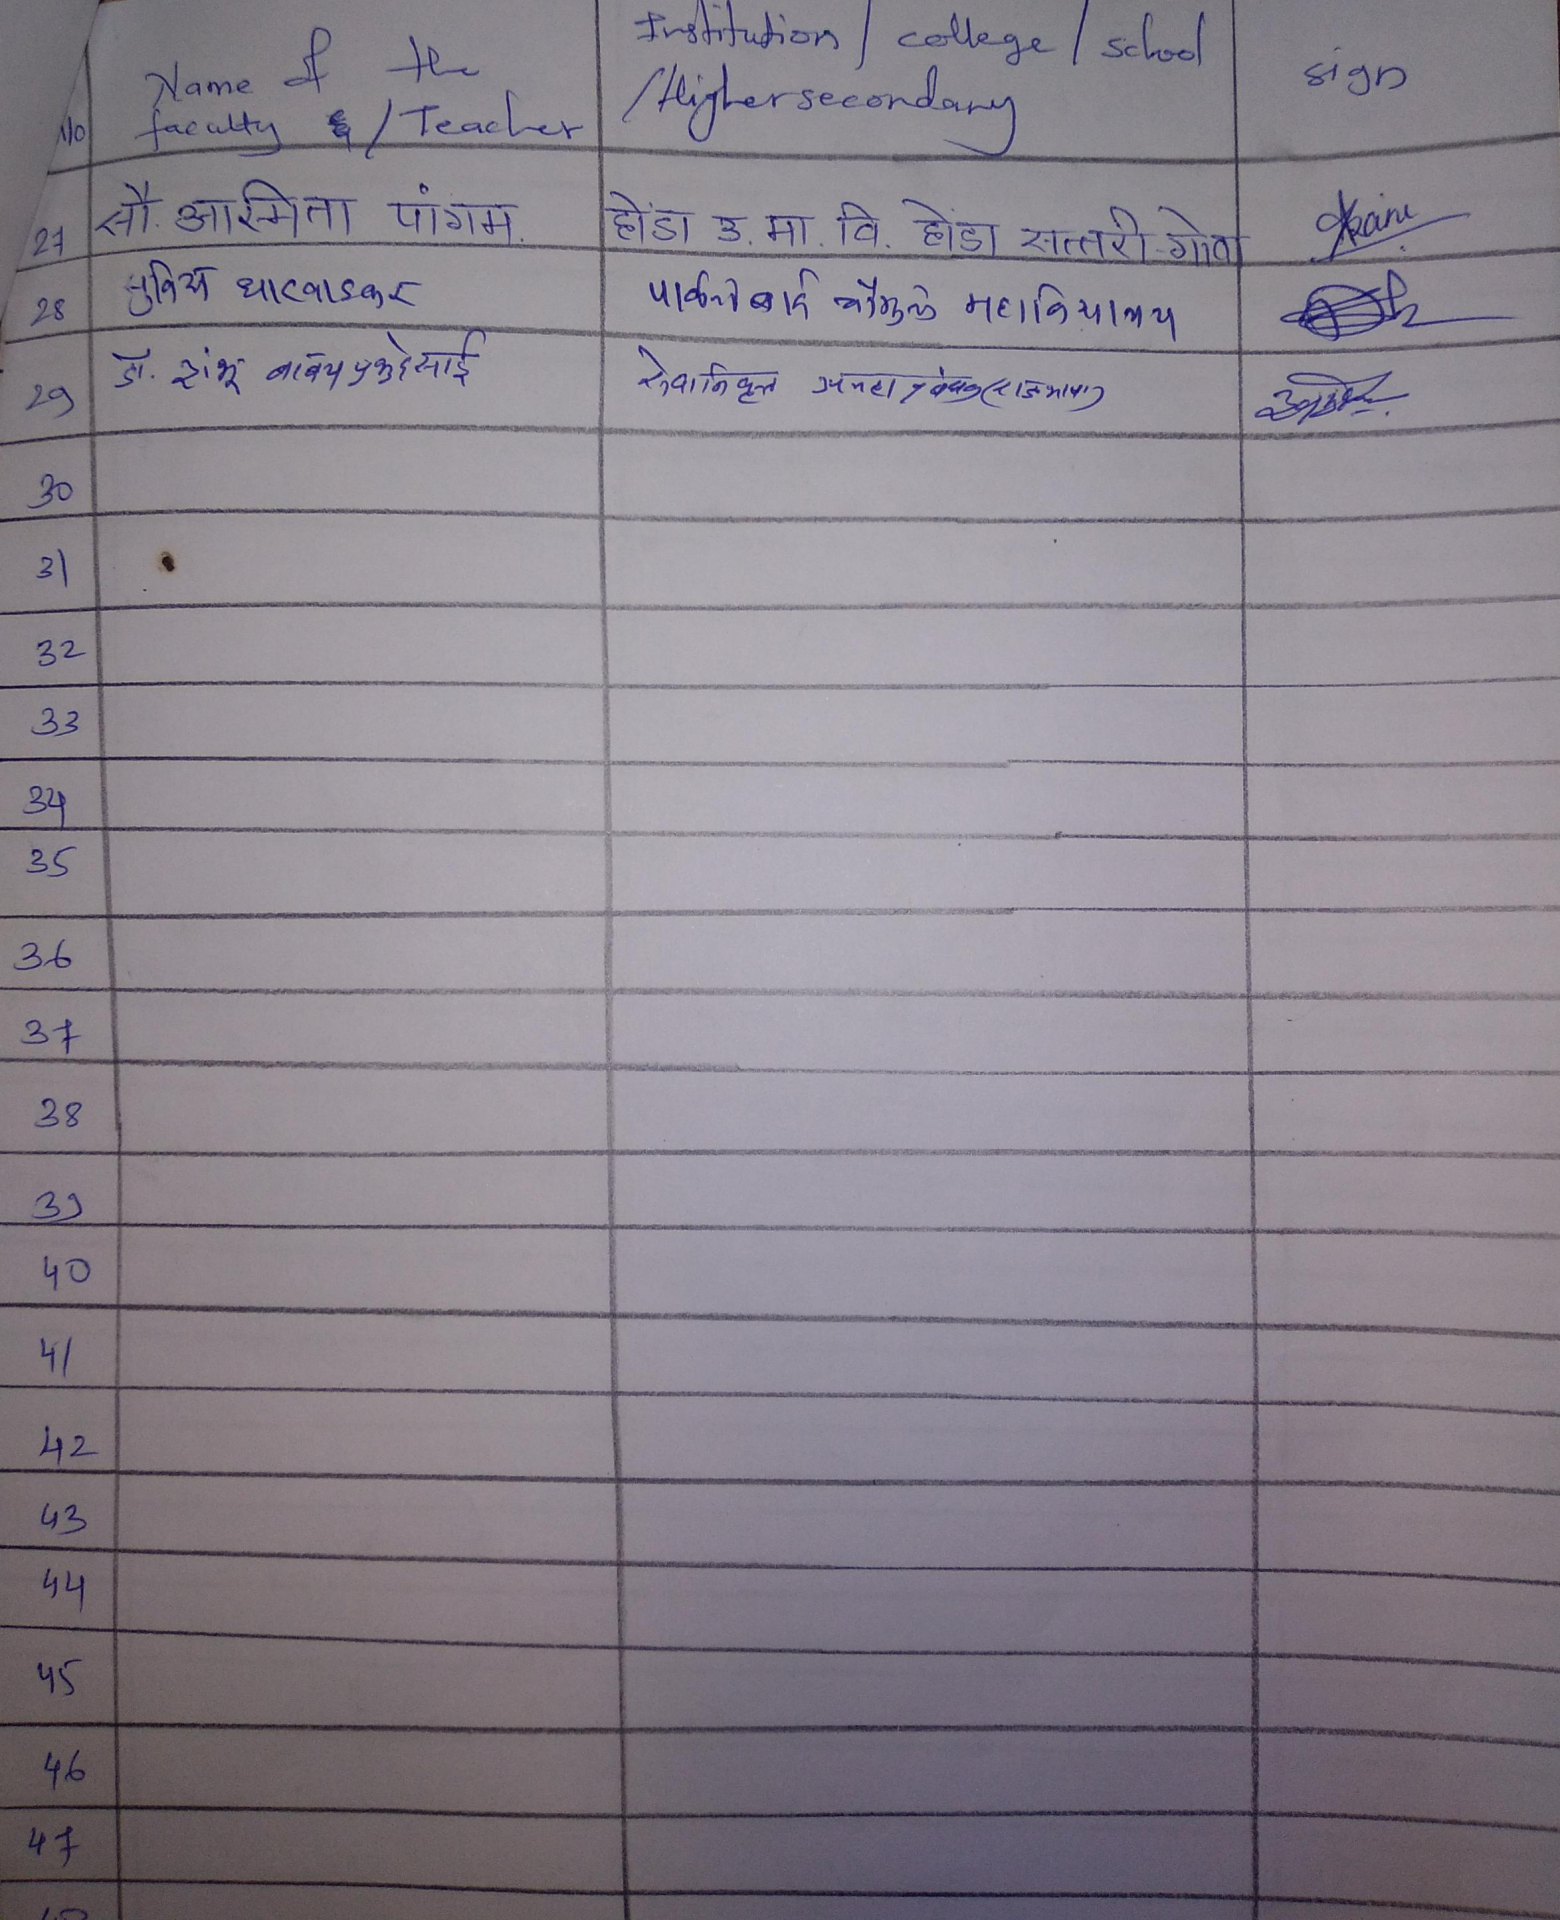 No
Name of the
faculty & / Teacher
Institution / college / school
/ Higher secondary
sign
27 सौ. आस्मिता पांगम. होंडा उ. मा. वि. होंडा सत्तरी-गोवा
28 धारवाडकर पार्वतीबाई चौगुले महाविद्यालय
29 डॉ. शंभू प्रभुदेसाई सेवानिवृत्त
30
31
32
33
34
35
36
37
38
39
40
41
42
43
44
45
46
47